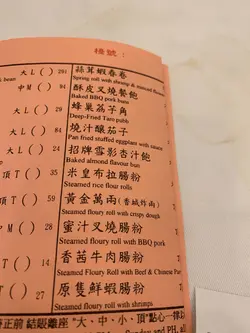 檯號：
大 L ( ) 29
絲茸蝦春卷
Spring roll with shrimp & minced
中 M ( )
酥皮叉燒餐飽
Baked BBQ pork buns
L ( )
蜂巢荔子角
Deep-Fried Taro pubb
大 L ( )
燒汁釀茄子
Pan fried stuffed eggplant with
大 L ( )
招牌雪影杏汁飽
Baked almond flavour bun
頂 T ( ) 35
米皇布拉腸粉
Steamed rice flour rolls
頂 T ( ) 59
黃金萬兩(香絨炸兩)
Steamed floury roll with crispy dough
M ( )
蜜汁叉燒腸粉
Steamed floury roll with BBQ pork
T ( )
香茜牛肉腸粉
Steamed Floury Roll with Beef & Chinese Par
T ( ) 27
原隻鮮蝦腸粉
Steamed floury roll with shrimps
正前 結賬離座
"大、中、小、頂"點心一律